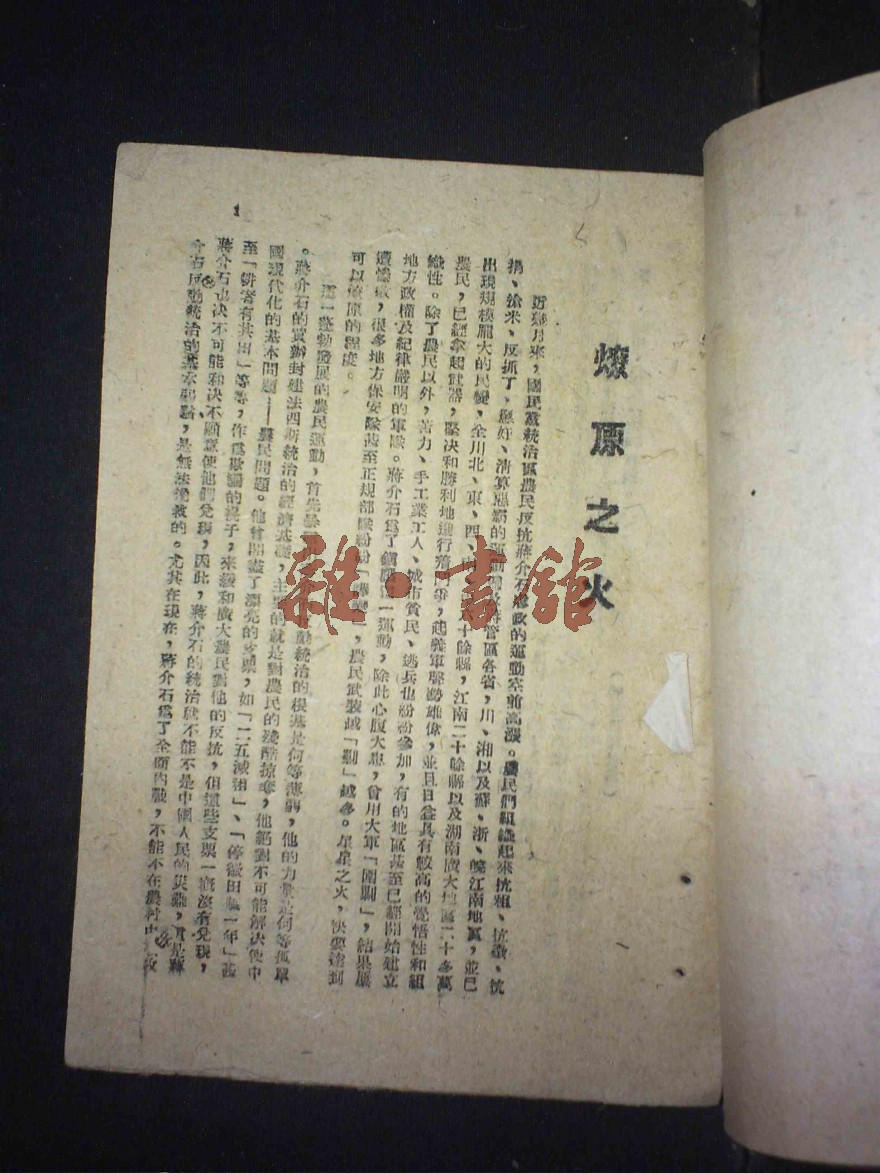 燎原之火
近幾月來,國民黨統治區農民反抗蔣介石 政的運動空前高漲。農民們組織起來抗租、抗糧、抗
捐、搶米、反抓丁,懲奸、清算惡霸的運動 蔣管區各省,川、湘以及蘇、浙、皖江南地區,並已
出現規模龐大的民變,全川北、東、西、 十餘縣,江南二十餘縣以及湖南廣大地區二十多萬
農民,已經拿起武器,堅決和勝利地進行 ,起義軍聲勢雄偉,並且日益具有較高的覺悟性和組
織性。除了農民以外,苦力、手工業工人、城市貧民、逃兵也紛紛參加,有的地區甚至已經開始建立
地方政權及紀律嚴明的軍隊。蔣介石爲了鎮壓這一運動,除此心腹大患,曾用大軍「圍剿」,結果屢
遭慘敗,很多地方保安隊甚至正規部隊紛紛「譁變」,農民武裝越「剿」越多。星星之火,快要達到
可以燎原的程度。
這一蓬勃發展的農民運動,首先暴 動統治的根基是何等薄弱,他的力量是何等孤單
。蔣介石的買辦封建法西斯統治的經濟基礎,主要的就是對農民的殘酷掠奪,他絕對不可能解決使中
國現代化的基本問題——農民問題。他曾開盡了漂亮的支票,如「二五減租」、「停徵田賦一年」甚
至「耕者有其田」等等,作爲欺騙的幌子,來緩和廣大農民對他的反抗,但這些支票一直沒有兌現,
蔣介石也決不可能和決不願意使他們兌現,因此,蔣介石的統治就不能不是中國人民的災難,實是蔣
介石反動統治的基本弱點,是無法挽救的。尤其在現在,蔣介石爲了全面內戰,不能不在農村中
1
雜·書館